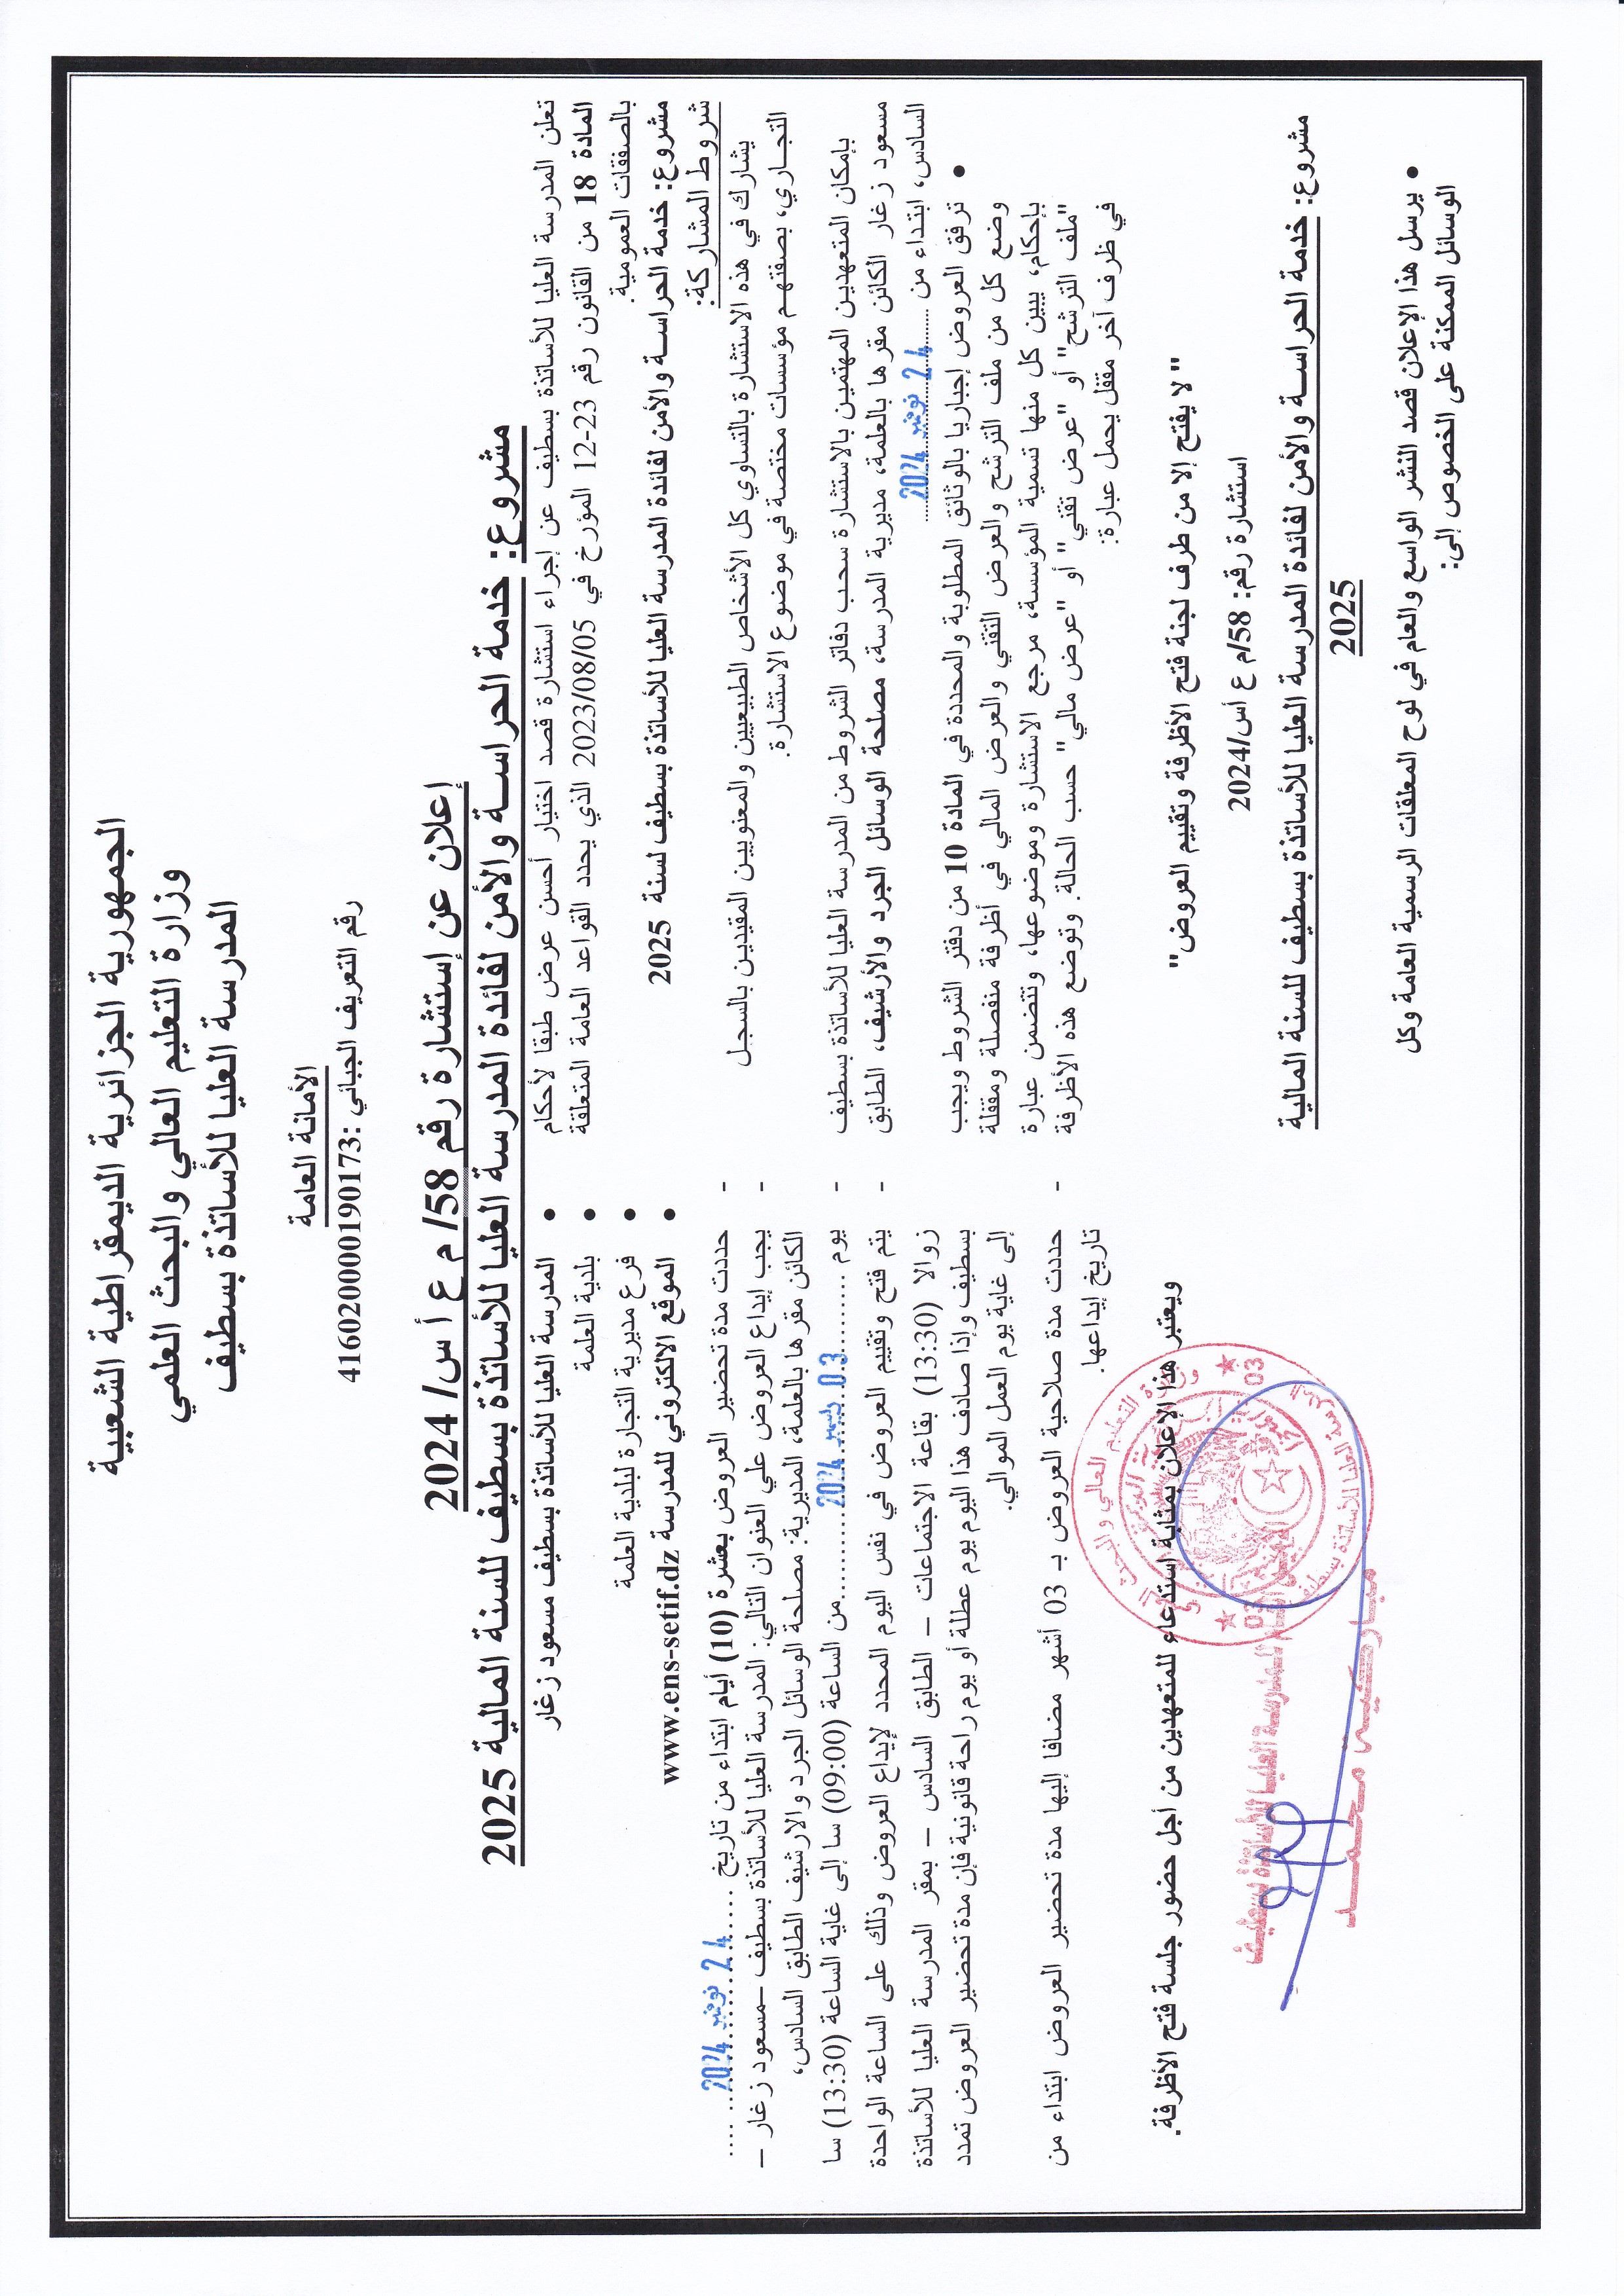 الجمهورية الجزائرية الديمقراطية الشعبية
وزارة التعليم العالي والبحث العلمي
المدرسة العليا للأساتذة بسطيف
الأمانة العامة
رقم التعريف الجبائي :416020000190173
إعلان عن إستشارة رقم 58/ م ع أ س/ 2024
مشروع: خدمة الحراســة والأمن لفائدة المدرسة العليا للأساتذة بسطيف للسنة المالية 2025
تعلن المدرسة العليا للأساتذة بسطيف عن إجراء استشارة قصد اختيار أحسن عرض طبقا لأحكام
المادة 18 من القانون رقم 23-12 المؤرخ في 2023/08/05 الذي يحدد القواعد العامة المتعلقة
بالصفقات العمومية.
مشروع: خدمة الحراســة والأمن لفائدة المدرسة العليا للأساتذة بسطيف لسنة 2025
شروط المشاركة:
يشارك في هذه الاستشارة بالتساوي كل الأشخاص الطبيعيين والمعنويين المقيدين بالسجل
التجـاري، بصفتهـم مؤسسات مختصة في موضوع الاستشارة.
بإمكان المتعهدين المهتمين بالاستشارة سحب دفاتر الشروط من المدرسة العليا للأساتذة بسطيف
مسعود زغار الكائن مقرها بالعلمة، مديرية المدرسة، مصلحة الوسائل الجرد والأرشيف، الطابق
السادس، ابتداء من ........ 24 نوفمبر 2024
• ترفق العروض إجباريا بالوثائق المطلوبة والمحددة في المادة 10 من دفتر الشروط ويجب
وضع كل من ملف الترشح والعرض التقني والعرض المالي في أظرفة منفصلة ومقفلة
بإحكام، يبين كل منها تسمية المؤسسة، مرجع الاستشارة وموضوعها، وتتضمن عبارة
"ملف الترشح" أو "عرض تقني" أو "عرض مالي" حسب الحالة. وتوضع هذه الأظرفة
في ظرف آخر مقفل يحمل عبارة:
" لا يفتح إلا من طرف لجنة فتح الأظرفة وتقييم العروض"
استشارة رقم: 58/م ع أس/2024
مشروع: خدمة الحراســة والأمن لفائدة المدرسة العليا للأساتذة بسطيف للسنة المالية
2025
• يرسل هذا الإعلان قصد النشر الواسع والعام في لوح المعلقات الرسمية العامة وكل
الوسائل الممكنة على الخصوص إلى:
• المدرسة العليا للأساتذة بسطيف مسعود زغار
• بلدية العلمة
• فرع مديرية التجارة لبلدية العلمة
• الموقع الالكتروني للمدرسة www.ens-setif.dz
- حددت مدة تحضير العروض بعشرة (10) أيام ابتداء من تاريخ ...... 24 نوفمبر 2024 ....
- يجب إيداع العروض علي العنوان التالي: المدرسة العليا للأساتذة بسطيف –مسعود زغار –
الكائن مقرها بالعلمة، المديرية: مصلحة الوسائل الجرد والارشيف الطابق السادس،
- يوم ........03 ديسمبر 2024........من الساعة (09:00) سا إلى غاية الساعة (13:30) سا
- يتم فتح وتقييم العروض في نفس اليوم المحدد لإيداع العروض وذلك على الساعة الواحدة
زوالا (13:30) بقاعة الاجتماعات – الطابق السادس – بمقر المدرسة العليا للأساتذة
بسطيف وإذا صادف هذا اليوم يوم عطلة أو يوم راحة قانونية فإن مدة تحضير العروض تمدد
إلى غاية يوم العمل الموالي.
- حددت مدة صلاحية العروض بـ 03 أشهر مضافا إليها مدة تحضير العروض ابتداء من
تاريخ إيداعها.
ويعتبر هذا الإعلان بمثابة استدعاء للمتعهدين من أجل حضور جلسة فتح الأظرفة.
وزارة التعليم العالي و البحث العلمي
المدرسة العليا للأساتذة بسطيف
03
03
المدرسة العليا للأساتذة بسطيف
مباركية محمد